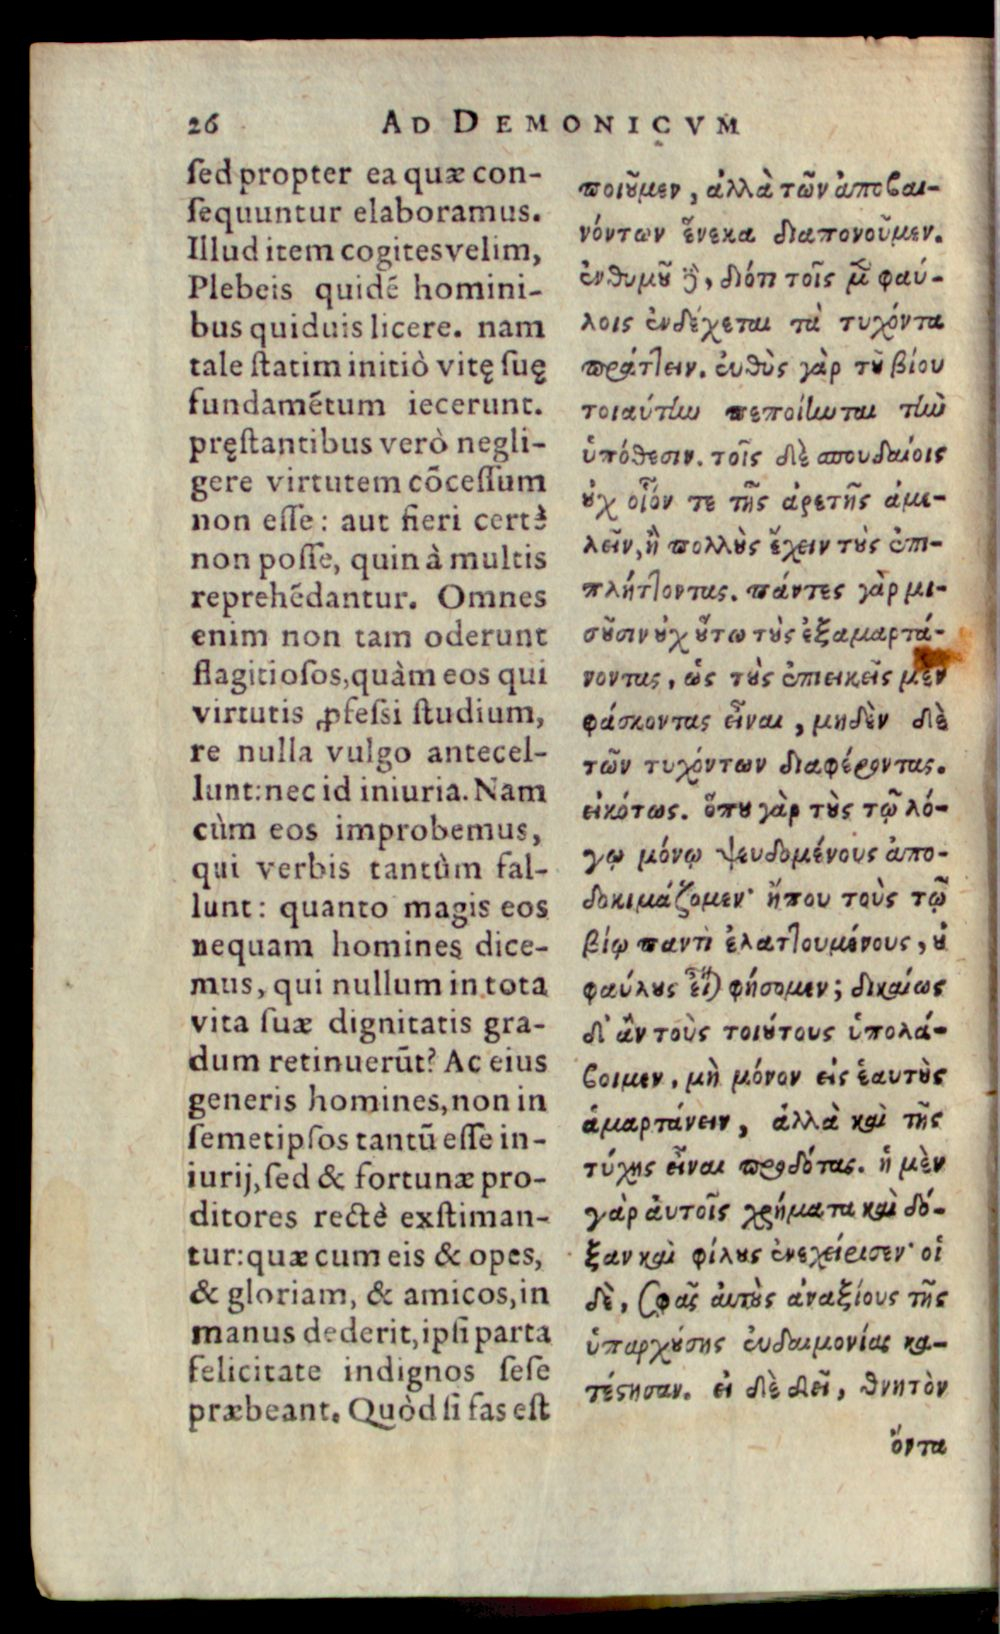 26 AD DEMONICVM
ſed propter ea quæ con-
ſequuntur elaboramus.
Illud item cogites velim,
Plebeis quidē homini-
bus quiduis licere. nam
tale ſtatim initiò vitę ſuę
fundamētum iecerunt.
pręſtantibus verò negli-
gere virtutem cōceſſum
non eſſe: aut fieri certè
non poſſe, quin à multis
reprehēdantur. Omnes
enim non tam oderunt
flagitioſos, quàm eos qui
virtutis ꝓfeſsi ſtudium,
re nulla vulgo antecel-
lunt: nec id iniuria. Nam
cùm eos improbemus,
qui verbis tantùm fal-
lunt: quanto magis eos
nequam homines dice-
mus, qui nullum in tota
vita ſuæ dignitatis gra-
dum retinuerūt? Ac eius
generis homines, non in
ſemetipſos tantū eſſe in-
iurij, ſed & fortunæ pro-
ditores rectè exſtiman-
tur: quæ cum eis & opes,
& gloriam, & amicos, in
manus dederit, ipſi parta
felicitate indignos ſeſe
præbeant. Quòd ſi fas eſt
ποιοῦμεν, ἀλλὰ τῶν ἀποβαι-
νόντων ἕνεκα διαπονοῦμεν.
ἐνθυμοῦ δὲ, διότι τοῖς μὲν φαύ-
λοις ἐνδέχεται τὰ τυχόντα
πράττειν. εὐθὺς γὰρ τοῦ βίου
τοιαύτην πεποίηνται τὴν
ὑπόθεσιν. τοῖς δὲ σπουδαίοις
οὐχ οἷόν τε τῆς ἀρετῆς ἀμε-
λεῖν, ἢ πολλοὺς ἔχειν τοὺς ἐπι-
πλήττοντας. πάντες γὰρ μι-
σοῦσιν οὐχ οὕτω τοὺς ἐξαμαρτά-
νοντας, ὡς τοὺς ἐπιεικεῖς μὲν
φάσκοντας εἶναι, μηδὲν δὲ
τῶν τυχόντων διαφέροντας.
εἰκότως. ὅπου γὰρ τοὺς τῷ λό-
γῳ μόνῳ ψευδομένους ἀπο-
δοκιμάζομεν· ἤπου τοὺς τῷ
βίῳ παντὶ ἐλαττουμένους, οὐ
φαύλους εἶναι φήσομεν; δικαίως
δ' ἂν τοὺς τοιούτους ὑπολά-
βοιμεν, μὴ μόνον εἰς ἑαυτοὺς
ἁμαρτάνειν, ἀλλὰ καὶ τῆς
τύχης εἶναι προδότας. ἡ μὲν
γὰρ αὐτοῖς χρήματα καὶ δό-
ξαν καὶ φίλους ἐνεχείρισεν· οἱ
δὲ, σφᾶς αὐτοὺς ἀναξίους τῆς
ὑπαρχούσης εὐδαιμονίας κα-
τέστησαν. εἰ δὲ δεῖ, θνητὸν
ὄντα